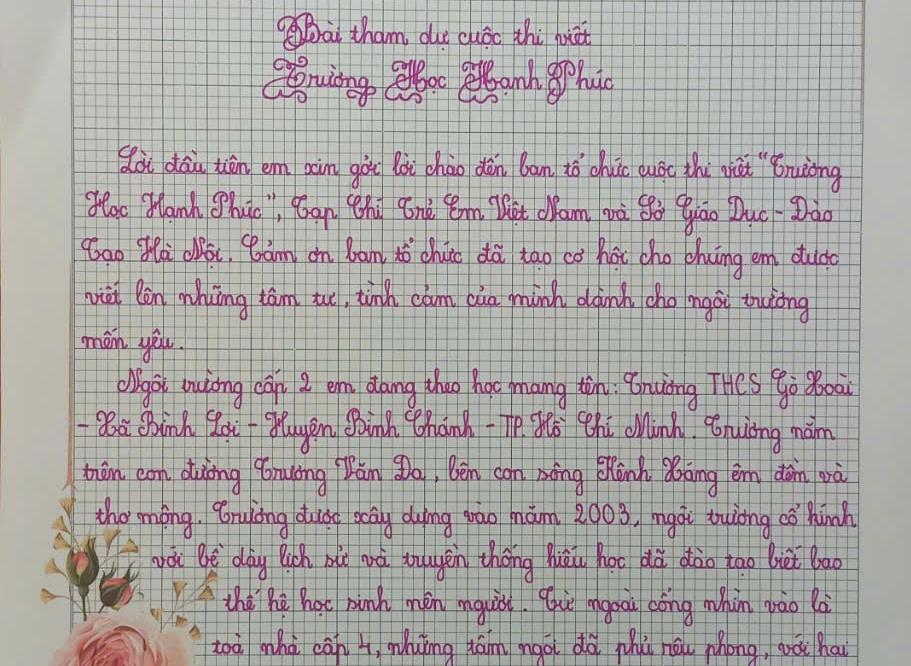 Bài tham dự cuộc thi viết
Trường Học Hạnh Phúc
Lời đầu tiên em xin gởi lời chào đến ban tổ chức cuộc thi viết "Trường
Học Hạnh Phúc", Tạp Chí Trẻ Em Việt Nam và Sở Giáo Dục - Đào
Tạo Hà Nội. Cảm ơn ban tổ chức đã tạo cơ hội cho chúng em được
viết lên những tâm tư, tình cảm của mình dành cho ngôi trường
mến yêu.
Ngôi trường cấp 2 em đang theo học mang tên: Trường THCS Gò Xoài
- Xã Bình Lợi - Huyện Bình Chánh - TP. Hồ Chí Minh. Trường nằm
trên con đường Trương Văn Đa, bên con sông Kênh Xáng êm đềm và
thơ mộng. Trường được xây dựng vào năm 2003, ngôi trường cổ kính
với bề dày lịch sử và truyền thống hiếu học đã đào tạo biết bao
thế hệ học sinh nên người. Từ ngoài cổng nhìn vào là
toà nhà cấp 4, những tấm ngói đã phủ rêu phong, với hai